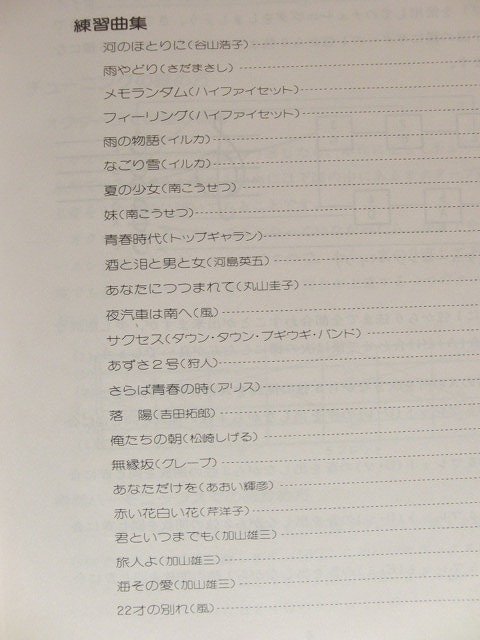 練習曲集
河のほとりに(谷山浩子)
雨やどり(さだまさし)
メモランダム(ハイファイセット)
フィーリング(ハイファイセット)
雨の物語(イルカ)
なごり雪(イルカ)
夏の少女(南こうせつ)
妹(南こうせつ)
青春時代(トップギャラン)
酒と泪と男と女(河島英五)
あなたにつつまれて(丸山圭子)
夜汽車は南へ(風)
サクセス(ダウン・タウン・ブギウギ・バンド)
あずさ2号(狩人)
さらば青春の時(アリス)
落 陽(吉田拓郎)
俺たちの朝(松崎しげる)
無縁坂(グレープ)
あなただけを(あおい輝彦)
赤い花白い花(芹洋子)
君といつまでも(加山雄三)
旅人よ(加山雄三)
海その愛(加山雄三)
22才の別れ(風)